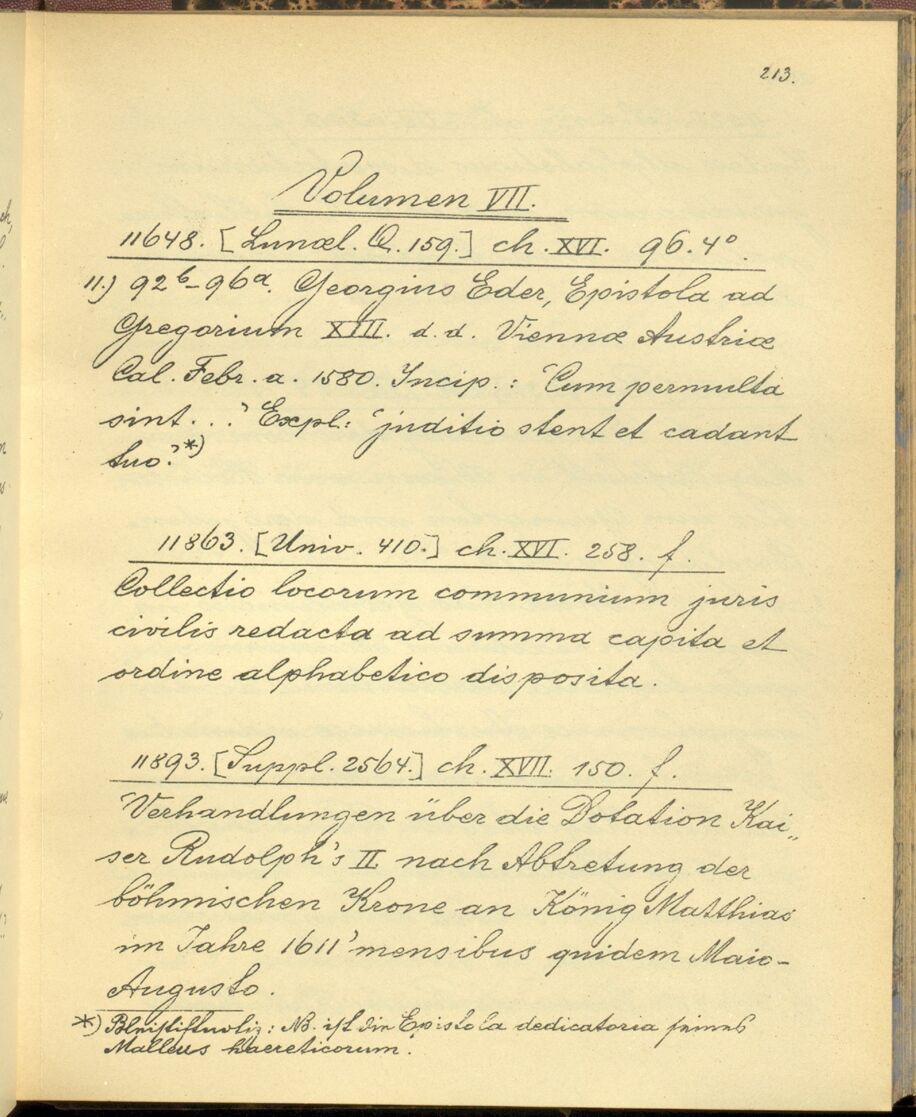 213.
Volumen VII.
11648. [Lunæl. Q. 159.] ch. XVI. 96. 4°.
11.) 92b-96a. Georgius Eder, Epistola ad
Gregorium XIII. d. d. Viennæ Austriæ
Cal. Febr. a. 1580. Incip.: 'Cum permulta
sint...' Expl: 'juditio stent et cadant
tuo.'*)
11863. [Univ. 410.] ch. XVI. 258. f.
Collectio locorum communium juris
civilis redacta ad summa capita et
ordine alphabetico disposita.
11893. [Suppl. 2564.] ch. XVII. 150. f.
'Verhandlungen über die Dotation Kai„
ser Rudolph's II nach Abtretung der
böhmischen Krone an König Matthias
im Jahre 1611' mensibus quidem Maio-
Augusto.
*) Bleistiftnotiz: NB. ist die Epistola dedicatoria seines
Malleus haereticorum.